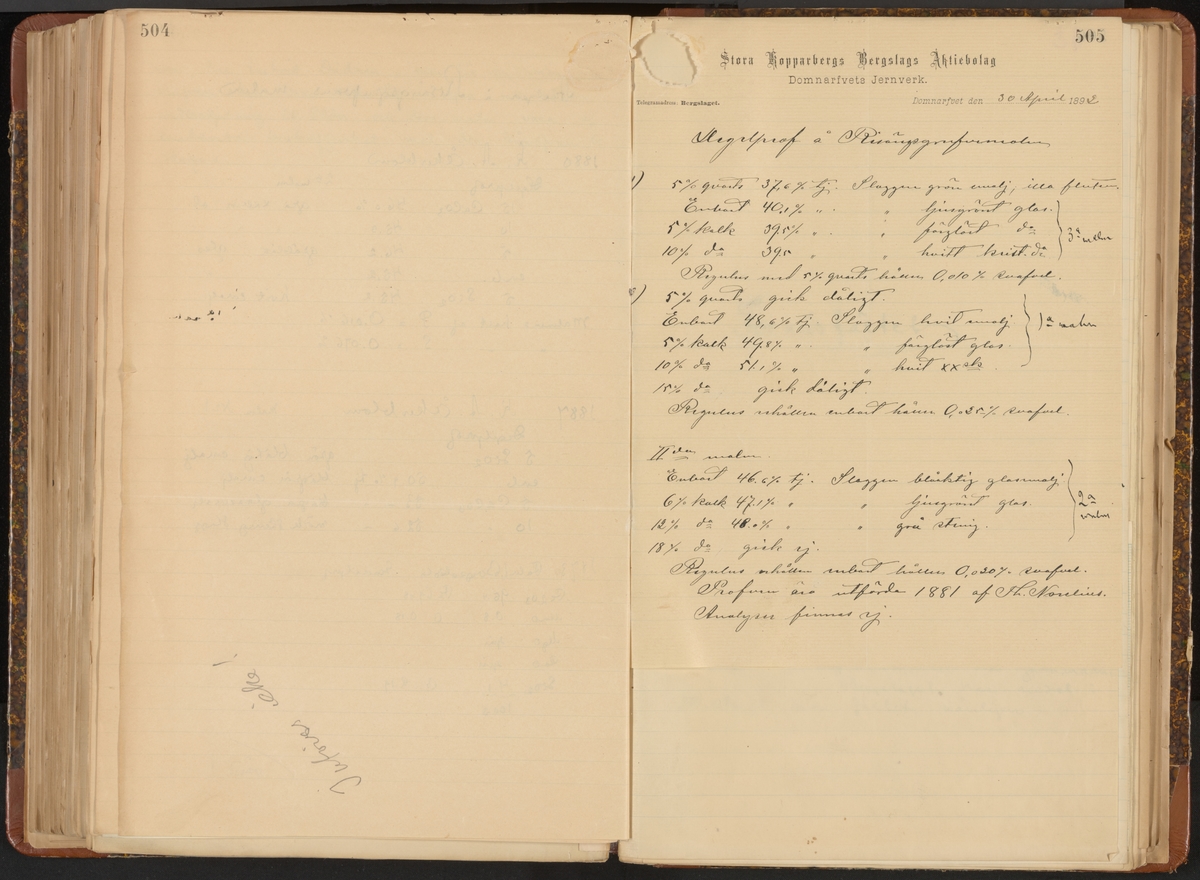 504
Införes icke!
505
Stora Kopparbergs Bergslags Aktiebolag
Domnarfvets Jernverk.
Telegramadress. Bergslaget.
Domnarfvet den 30 April 1892
Degelprof å
1) 5% quarts 37,6% tj. Slaggen grön emalj, illa fluten.
Enbart 40,1% „ „ ljusgrönt glas.
5% kalk 39,5% „ „ färglöst do
10% do 39,5 „ hvitt krist. do
3a malm
Regulus med 5% quarts håller 0,010% svafvel.
5% quarts gick dåligt.
Enbart 48,6% tj. Slaggen hvit emalj
5% kalk 49,8% „ „ färglöst glas.
10% do 51,1% „ „ hvit xx
1a malm
15% do gick dåligt.
Regulus erhållen enbart håller 0,025% svafvel.
II malm.
Enbart 46,6% tj. Slaggen blåaktig glasemalj
6% kalk 47,1% „ „ ljusgrönt glas.
12% do 48,0% „ „ grå stenig.
2a malm
18% do gick ej.
Regulus erhållen enbart håller 0,020% svafvel.
Profven äro utförda 1881 af Th. Norelius.
Analyser finnas ej.